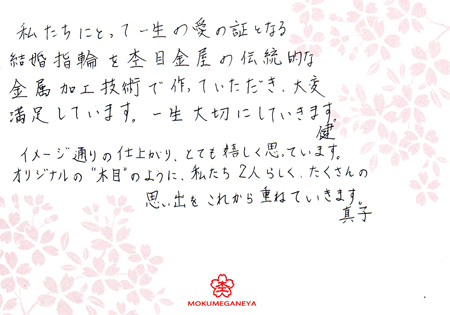 私たちにとって一生の愛の証となる
結婚指輪を杢目金屋の伝統的な
金属加工技術で作っていただき、大変
満足しています。一生大切にしていきます。
健
イメージ通りの仕上がり、とても嬉しく思っています。
オリジナルの"木目"のように、私たち2人らしく、たくさんの
思い出をこれから重ねていきます。
真子
杢
MOKUMEGANEYA